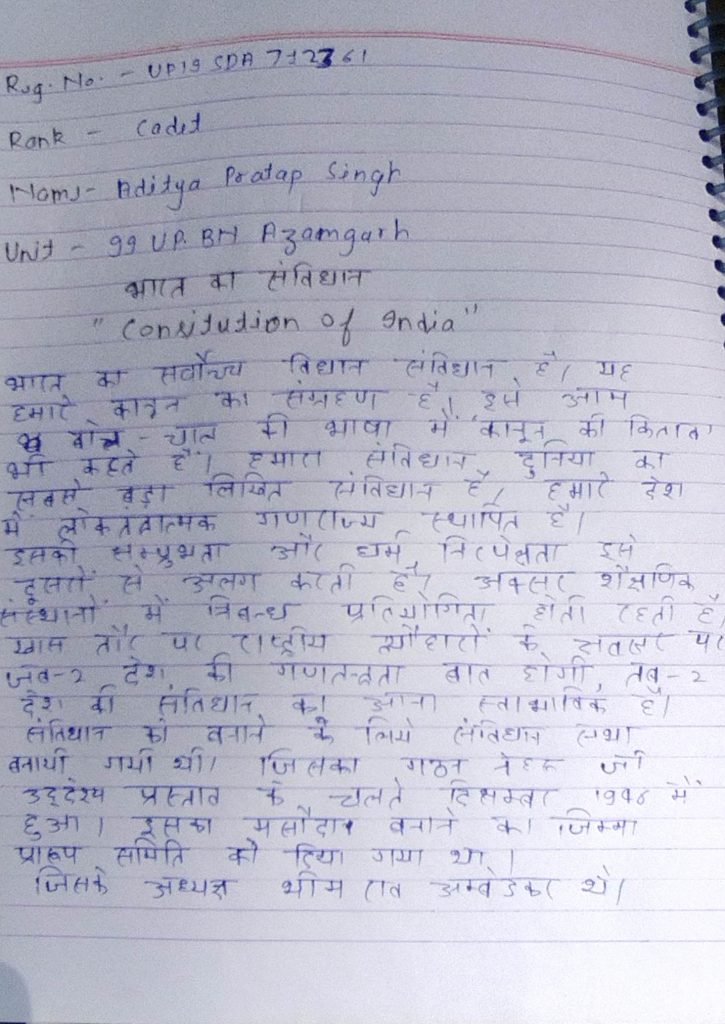 Reg. No. - UP19 SDA 712361
Rank - Cadet
Name - Aditya Pratap Singh
Unit - 99 UP. BN Azamgarh
भारत का संविधान
"Consitution of India"
भारत का सर्वोच्च विधान संविधान है। यह
हमारे कानून का संग्रहण है। इसे आम
बोल-चाल की भाषा में 'कानून की किताब'
भी कहते हैं। हमारा संविधान दुनिया का
सबसे बड़ा लिखित संविधान है, हमारे देश
में लोकतंत्रात्मक गणराज्य स्थापित है।
इसकी सम्प्रुभता और धर्म निरपेक्षता इसे
दूसरों से अलग करती है। अक्सर शैक्षणिक
संस्थानों में निबन्ध प्रतियोगिता होती रहती है,
खास तौर पर राष्ट्रीय त्यौहारों के अवसर पर
जब-२ देश की गणतन्त्रता बात होगी, तब-२
देश की संविधान का आना स्वाभाविक है।
संविधान को बनाने के लिये संविधान सभा
बनायी गयी थी। जिसका गठन नेहरू जी
उद्देश्य प्रस्ताव के चलते दिसम्बर 1946 में
हुआ। इसका मसौदा बनाने का जिम्मा
प्रारूप समिति को दिया गया था।
जिसके अध्यक्ष भीम राव अम्बेडकर थे।